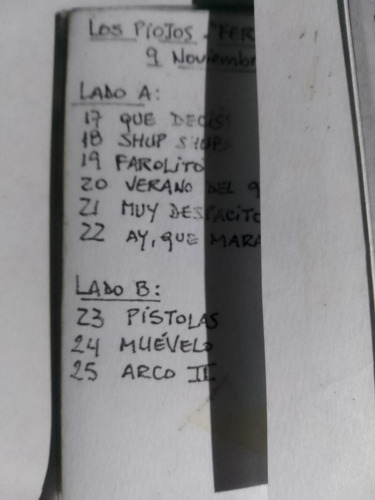 LOS PIOJOS "FER
9 NOVIEMBRE
LADO A:
17 QUE DECIS
18 SHUP SHUP
19 FAROLITO
20 VERANO DEL 9
21 MUY DESPACITO
22 AY, QUE MARA
LADO B:
23 PISTOLAS
24 MUÉVELO
25 ARCO II